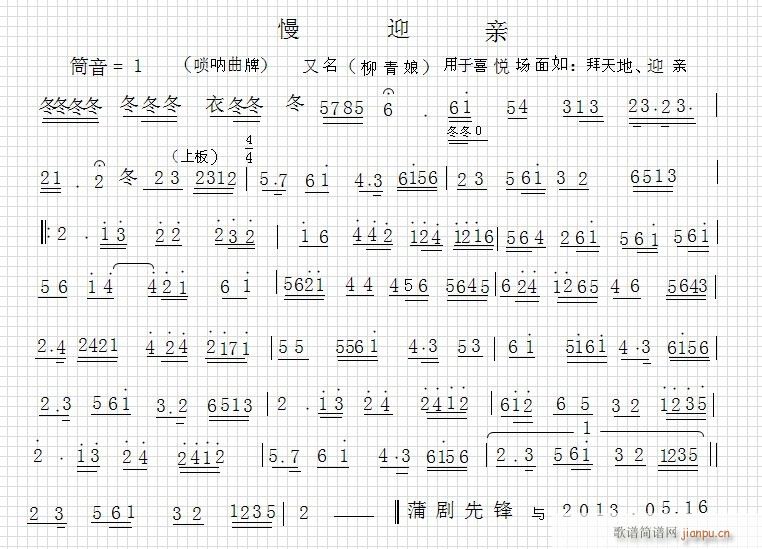 慢 迎 亲
筒音＝1 （唢呐曲牌） 又名（柳青娘）用于喜悦场面如：拜天地、迎亲
冬冬冬冬 冬冬冬 衣冬冬 冬 5785 6 . 61 54 313 23.23.
冬冬0
（上板） 4/4
21 . 2 冬 23 2312 | 5.7 61 4.3 6156 | 23 561 32 6513 |
‖: 2 . 13 22 232 | 16 442 124 1216 | 564 261 561 561 |
56 14 421 61 | 5621 44 456 5645 | 624 1265 46 5643 |
2.4 2421 424 2171 | 55 5561 4.3 53 | 61 5161 4.3 6156 |
2.3 561 3.2 6513 | 2 . 13 24 2412 | 612 65 32 1235 |
1
2 . 13 24 2412 | 5.7 61 4.3 6156 | 2.3 561 32 1235 ‖
23 561 32 1235 | 2 — — ‖ 蒲剧先锋 与 2013.05.16
歌谱简谱网 jianpu.cn